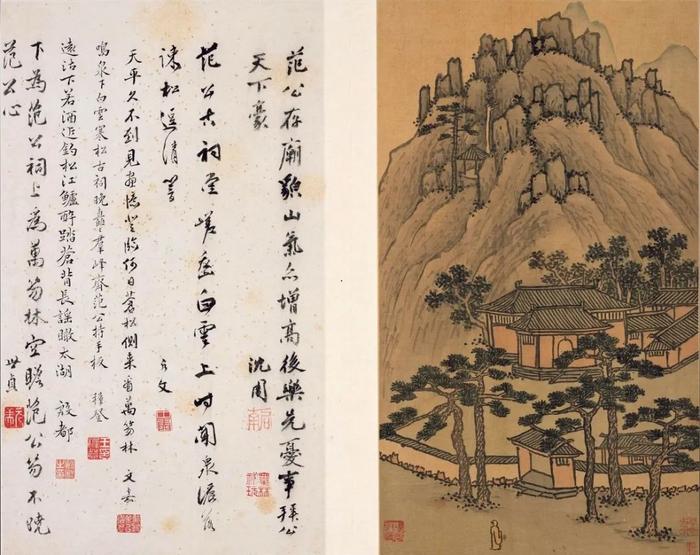 范公存廟貌山氣亦增高後樂先憂事拜公
天下豪
沈周
范公古祠堂嵯白雲上時聞泉落
疎松逗清響
允文
天平久不到見畫憶登臨何日蒼松側來看萬笏林 文嘉
鳴泉下白雲寒松古祠晚矗矗羣峰齊范公持手板 穉登
遠沽下若酒近釣松江鱸醉踏蒼背長謠瞰太湖 殷都
下為范公祠上為萬笏林空瞻范公笏不曉
范公心
世貞